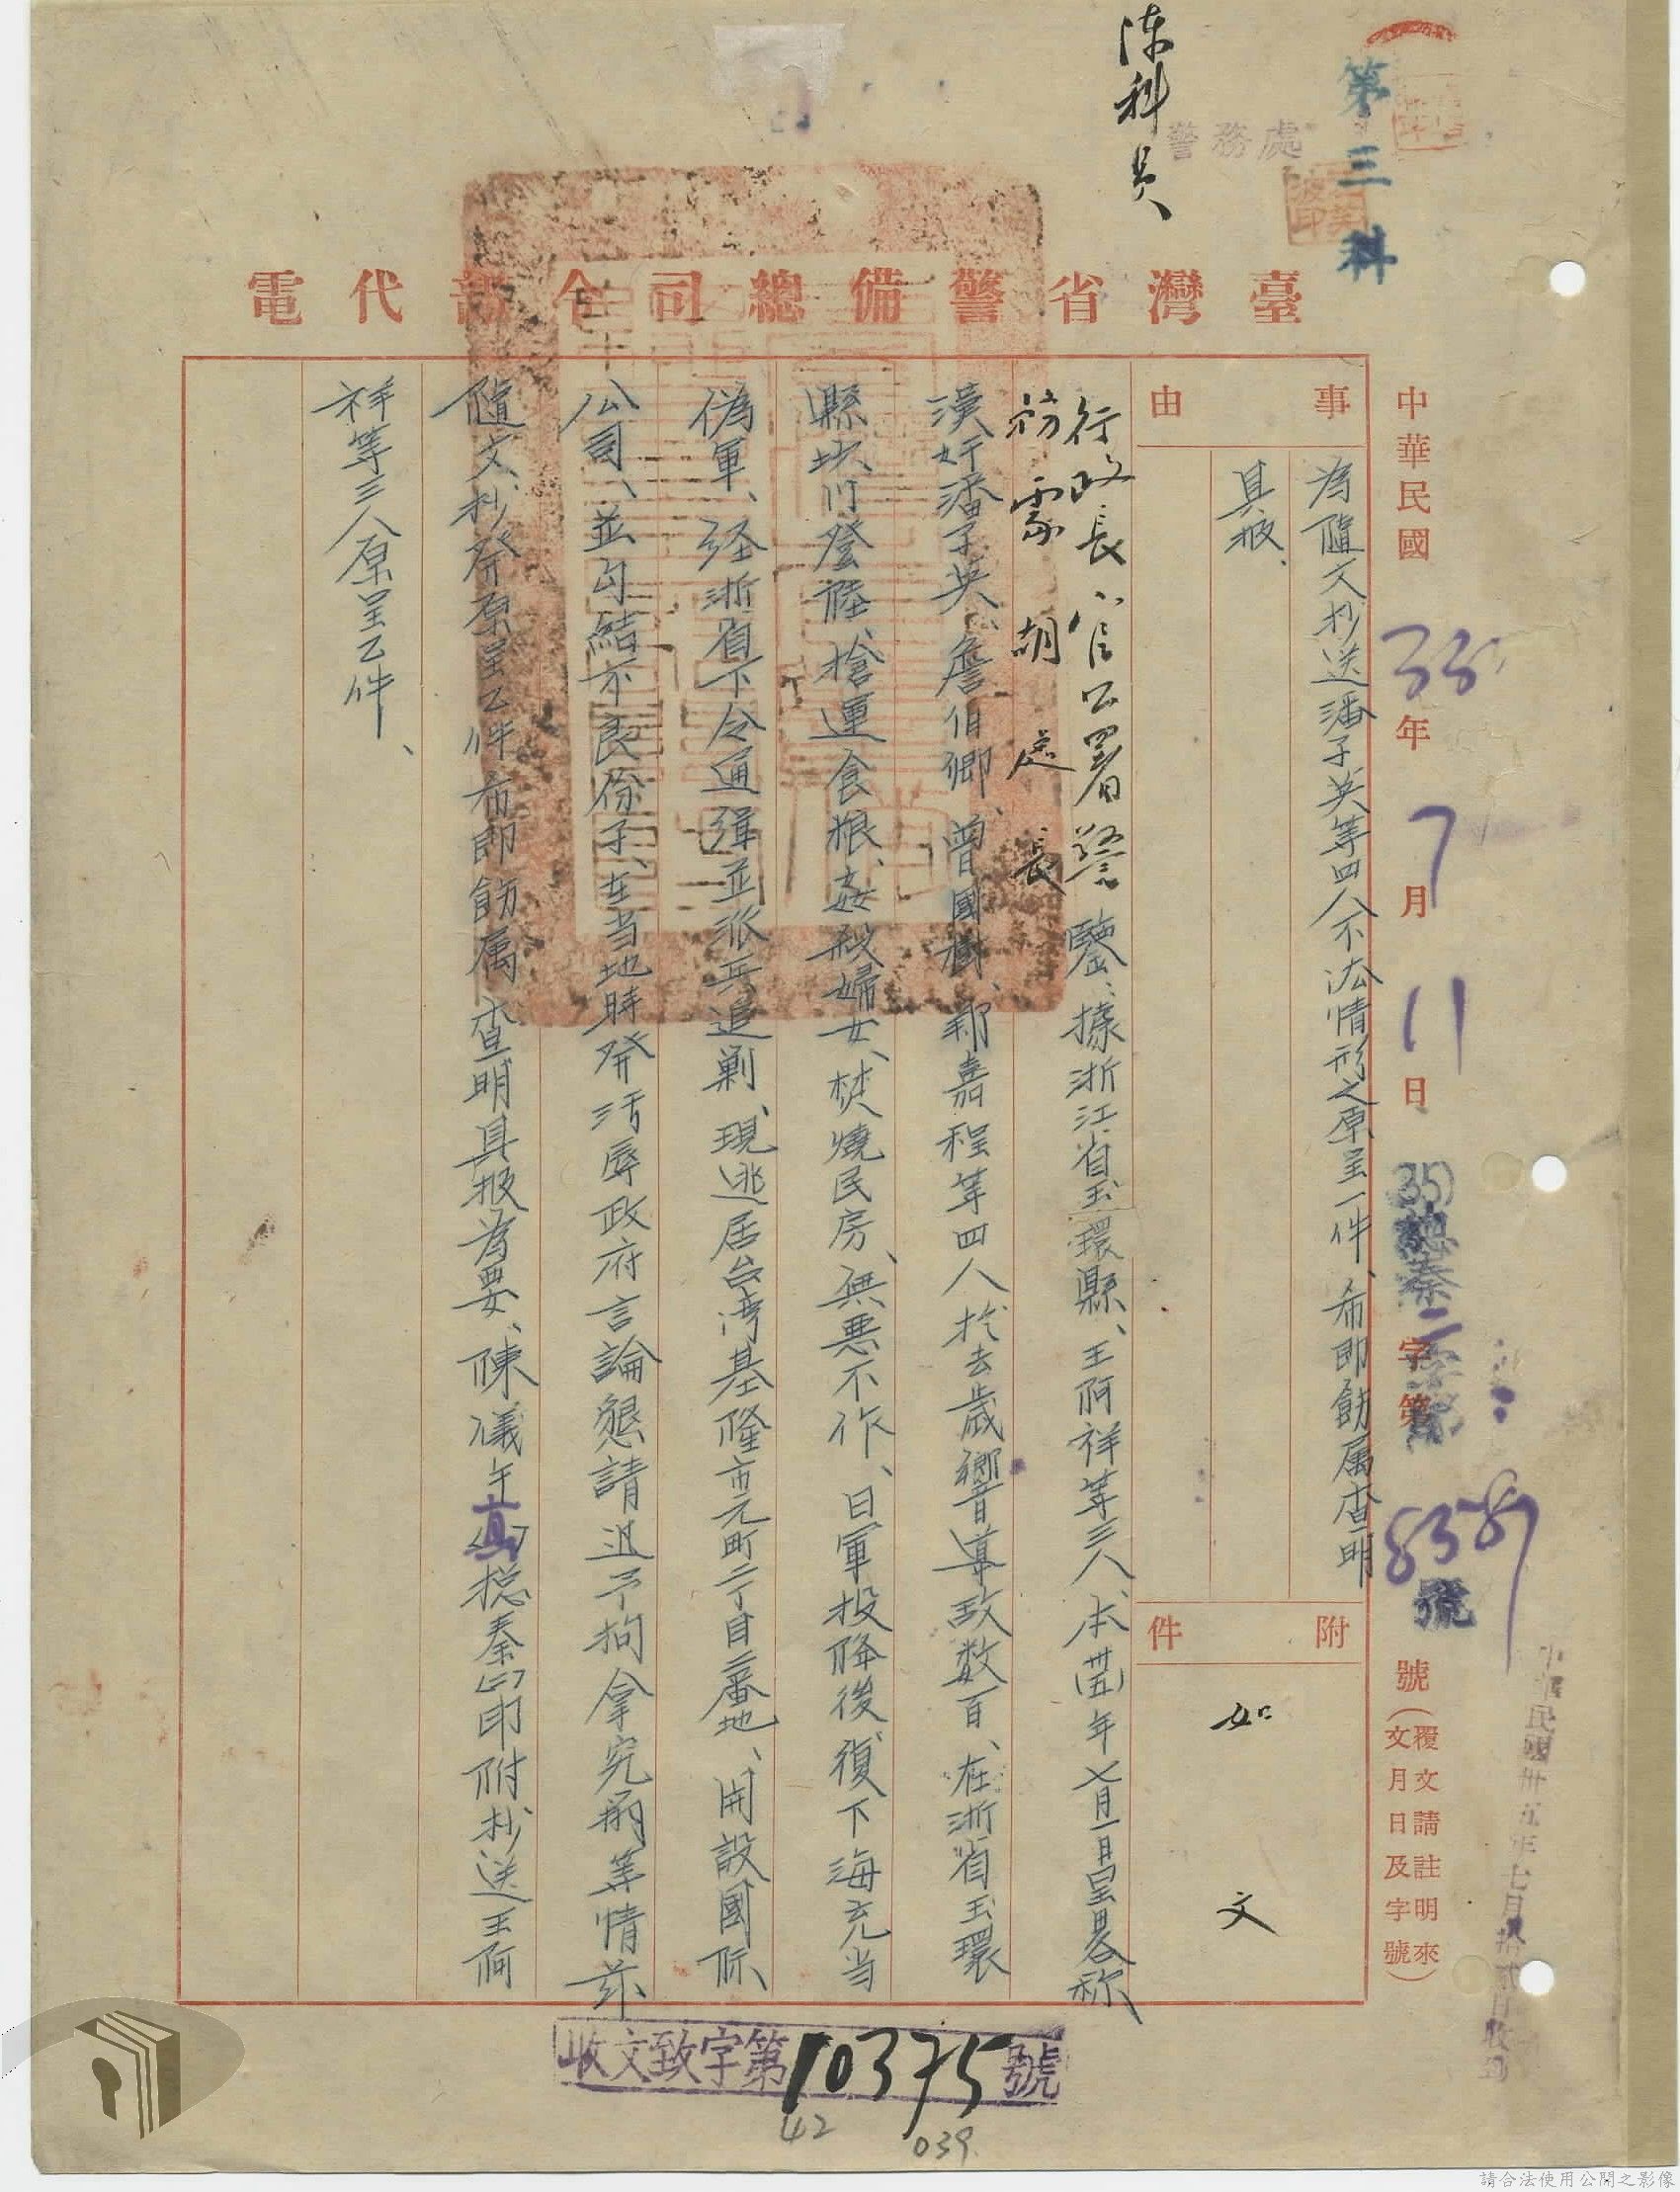 第三科
警務處
陳科員
臺灣省警備總司令部代電
中華民國35年7月11日
(35)總秦二字第8389號
號(覆文請註明來文月日及字號)
中華民國卅五年七月拾貳日收到
事由
為隨文抄送潘子英等四人不法情形之原呈一件、希即飭屬查明
具报、
附件
如文
行政長官公署警
務處胡處長
鑒、據浙江省玉環縣、王阿祥等三人本(卅五)年七月一日呈畧称
漢奸潘子英、詹伯卿、曾國樹、郭嘉程等四人於去歲嚮導敌数百、在浙省玉環
縣坎門登陸、搶運食粮、姦殺婦女、焚燒民房、無悪不作、日軍投降後、復下海充当
偽軍、経浙省下令通緝並派兵追剿、現逃居台湾基隆市元町二丁目二番地、開設國际
公司、並勾結不良份子、在当地時発污辱政府言論懇請迅予拘拿究辦等情茲
隨文抄発原呈乙件希即飭属查明具报為要、陳儀午真總秦印附抄送王阿
祥等三人原呈乙件、
收文致字第10375號
42
039
請合法使用公開之影像